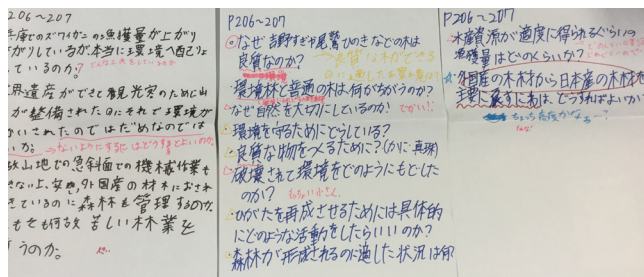 206~207
兵庫でのズワイガニの漁獲量が上がり
下がりしているが本当に環境へ配慮し
ているのか?
世界遺産ができて観光客のために山
が整備されたのにそれで環境が
いされたのではだめなのでは
いか。→ないようにするにはどうするとよいのか
故山地での急斜面での機械作業も
きない上、安い外国産の材木におされ
きているのに森林を管理するのか
もそも何故苦しい林業を
うのか。
P206~207
なぜ吉野すぎや尾鷲ひのきなどの木は
良質なのか?
環境林と普通の木は何がちがうのか?
なぜ自然を大切にしているのか? でかい!!
環境を守るためにどうしている?
良質な物をつくるために?(かに・真珠)
破壊されて環境をどのようにもどした
のか?
ひがたを再成させるためには具体的
にどのような活動をしたらいいのか?
森林が形成されるのに適した状況は何
P206~207
水産資源が適度に得られるぐらいの
漁獲量はどのくらいか?
外国産の木材から日本産の木材を
主要に戻すには、どうすればよいか